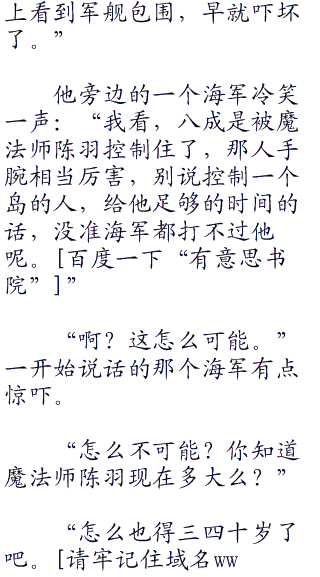 上看到军舰包围，早就吓坏
了。”
他旁边的一个海军冷笑
一声：“我看，八成是被魔
法师陈羽控制住了，那人手
腕相当厉害，别说控制一个
岛的人，给他足够的时间的
话，没准海军都打不过他
呢。[百度一下“有意思书
院”]”
“啊？这怎么可能。”
一开始说话的那个海军有点
惊吓。
“怎么不可能？你知道
魔法师陈羽现在多大么？”
“怎么也得三四十岁了
吧。[请牢记住域名ww